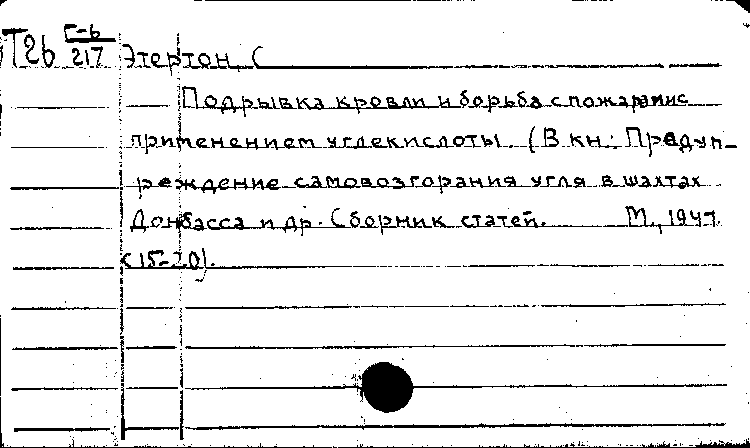 Т26 Г-6/217 Этертон, С
Подрывка кровли и борьба с пожарами с
применением углекислоты. (В кн.: Предуп-
реждение самовозгорания угля в шахтах
Донбасса и др. Сборник статей. М., 1947
с 15-20).